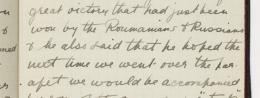 great victory that had just been
won by the Roumanians & Russians
& he also said that he hoped the
next time we went over the par-
apet we would be accompanied